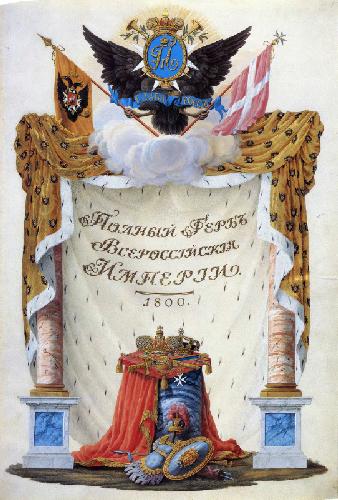 Полный Гербъ
Всероссійскія
Имперіи.
1800.